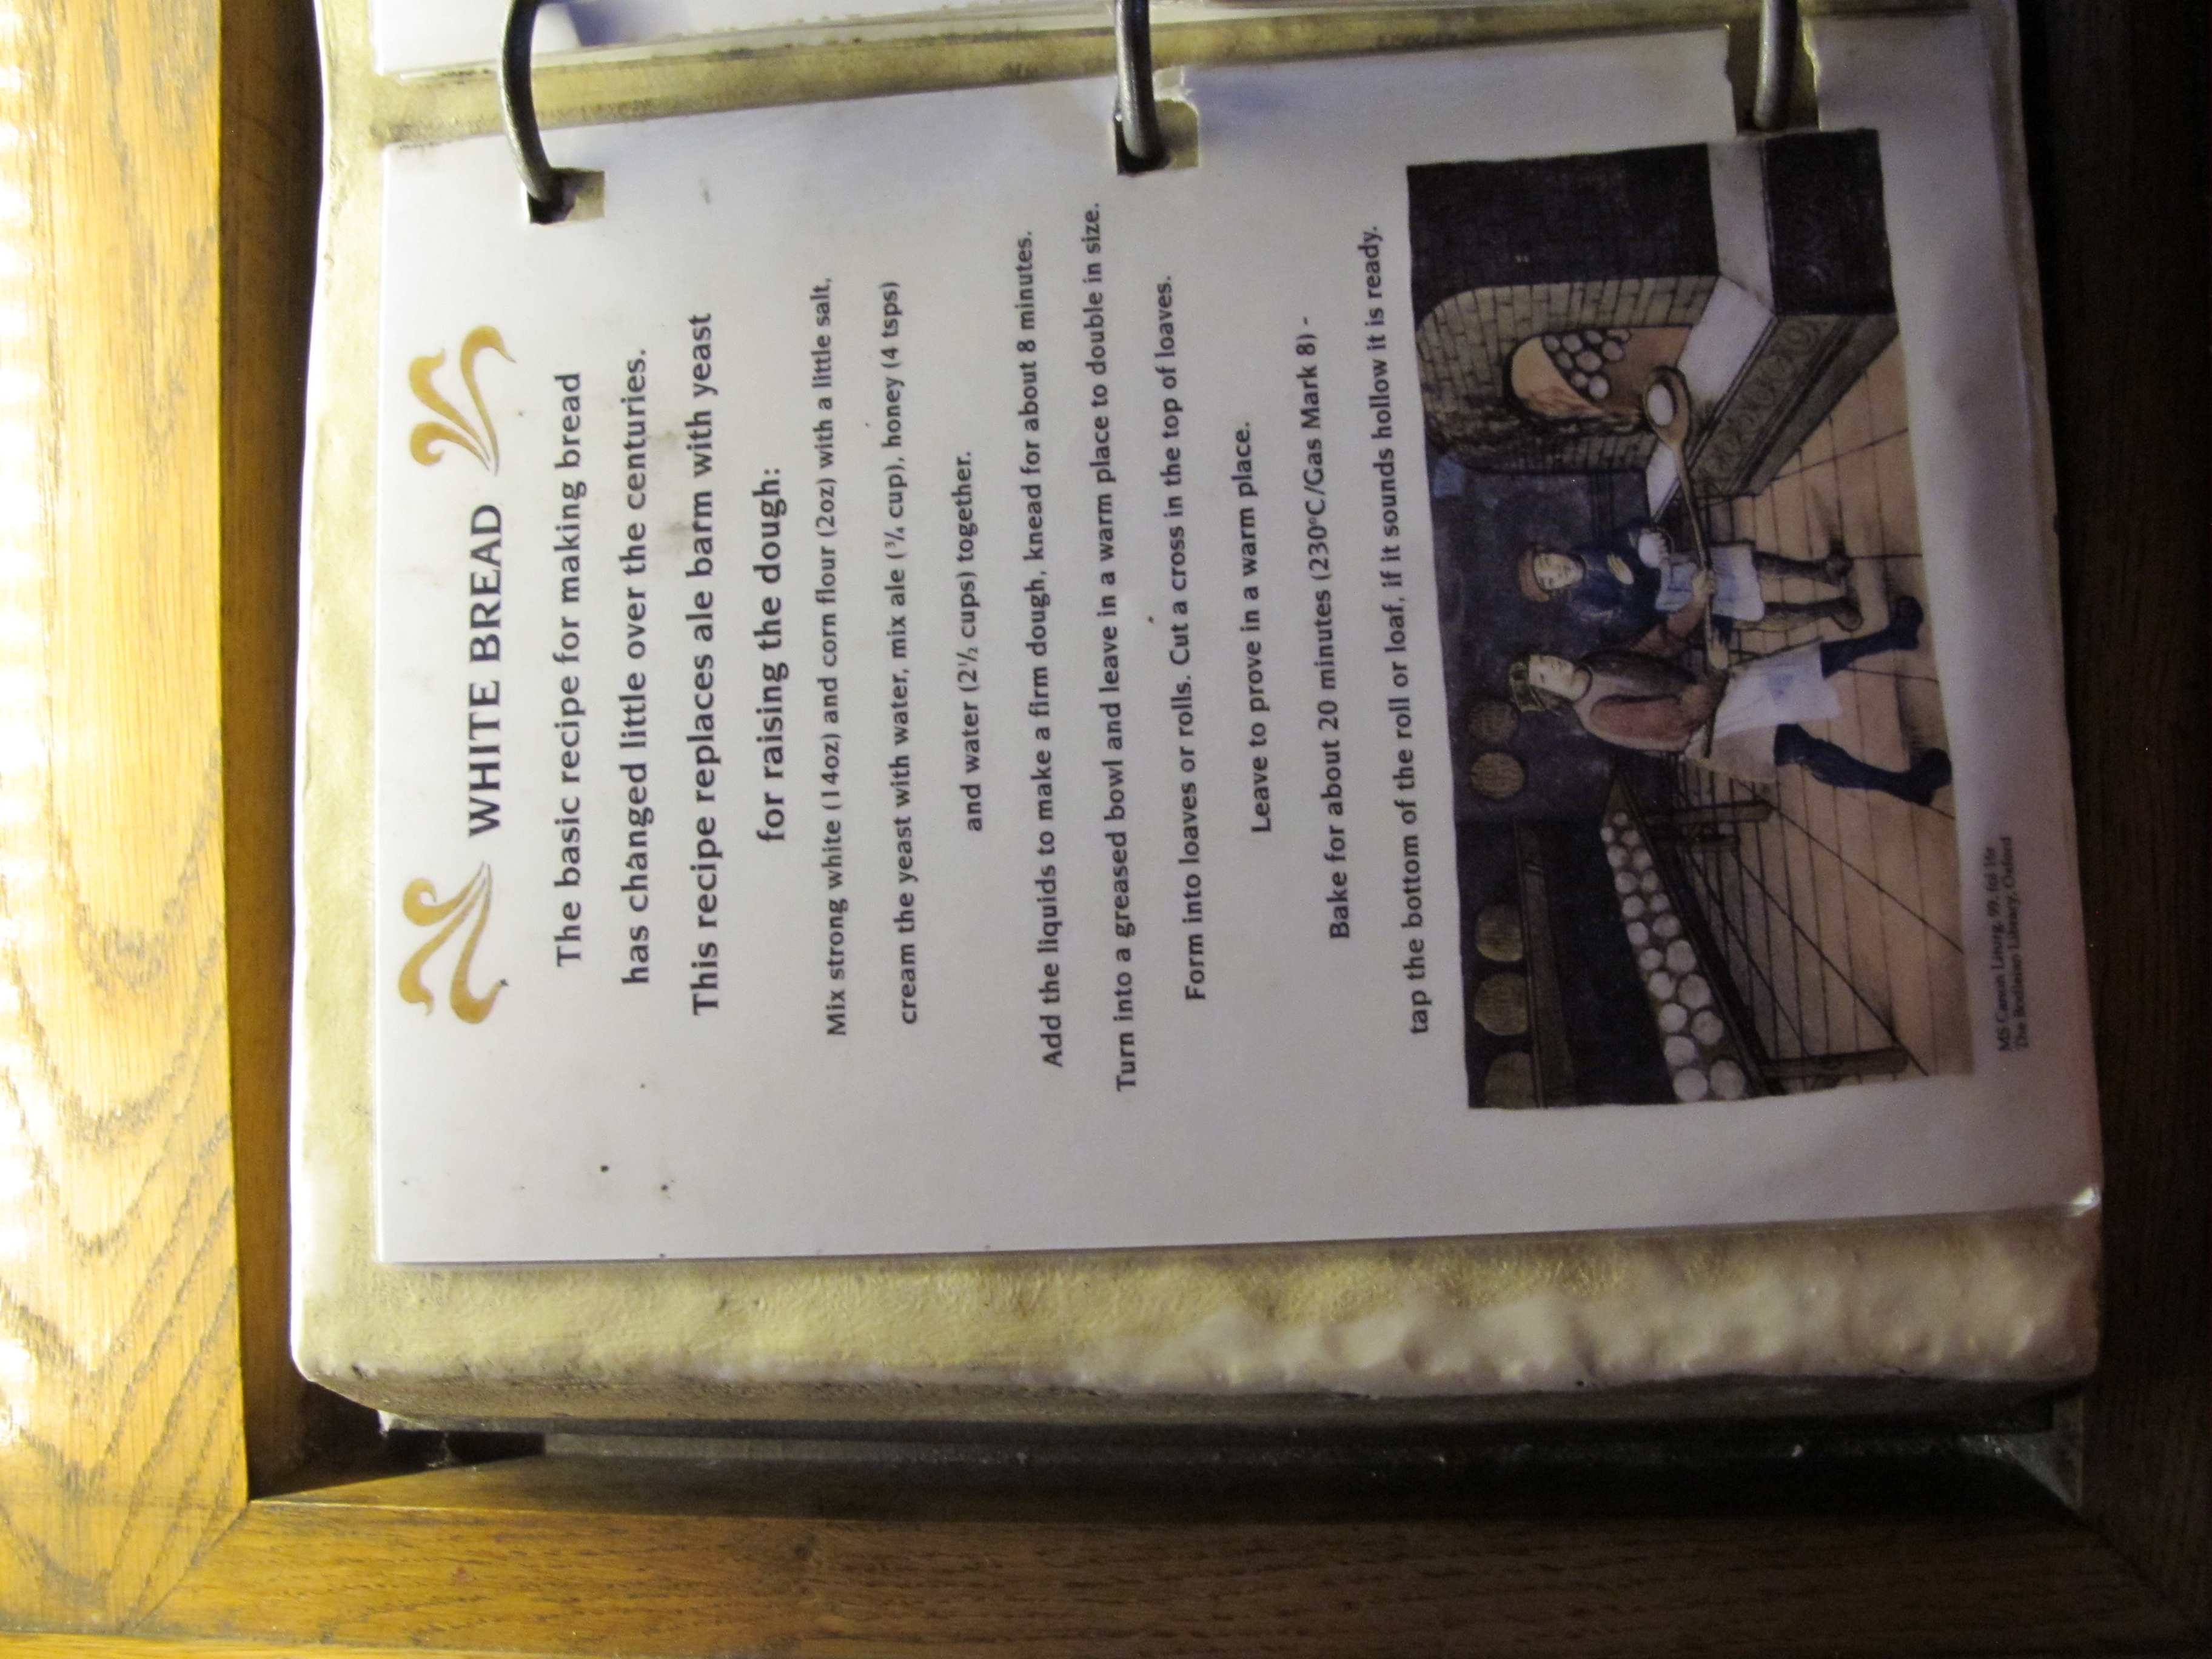 WHITE BREAD
The basic recipe for making bread
has changed little over the centuries.
This recipe replaces ale barm with yeast
for raising the dough:
Mix strong white (14oz) and corn flour (2oz) with a little salt,
cream the yeast with water, mix ale (¾ cup), honey (4 tsps)
and water (2½ cups) together.
Add the liquids to make a firm dough, knead for about 8 minutes.
Turn into a greased bowl and leave in a warm place to double in size.
Form into loaves or rolls. Cut a cross in the top of loaves.
Leave to prove in a warm place.
Bake for about 20 minutes (230°C/Gas Mark 8) -
tap the bottom of the roll or loaf, if it sounds hollow it is ready.
MS Canon Liturg. 99, fol 16r
The Bodleian Library, Oxford